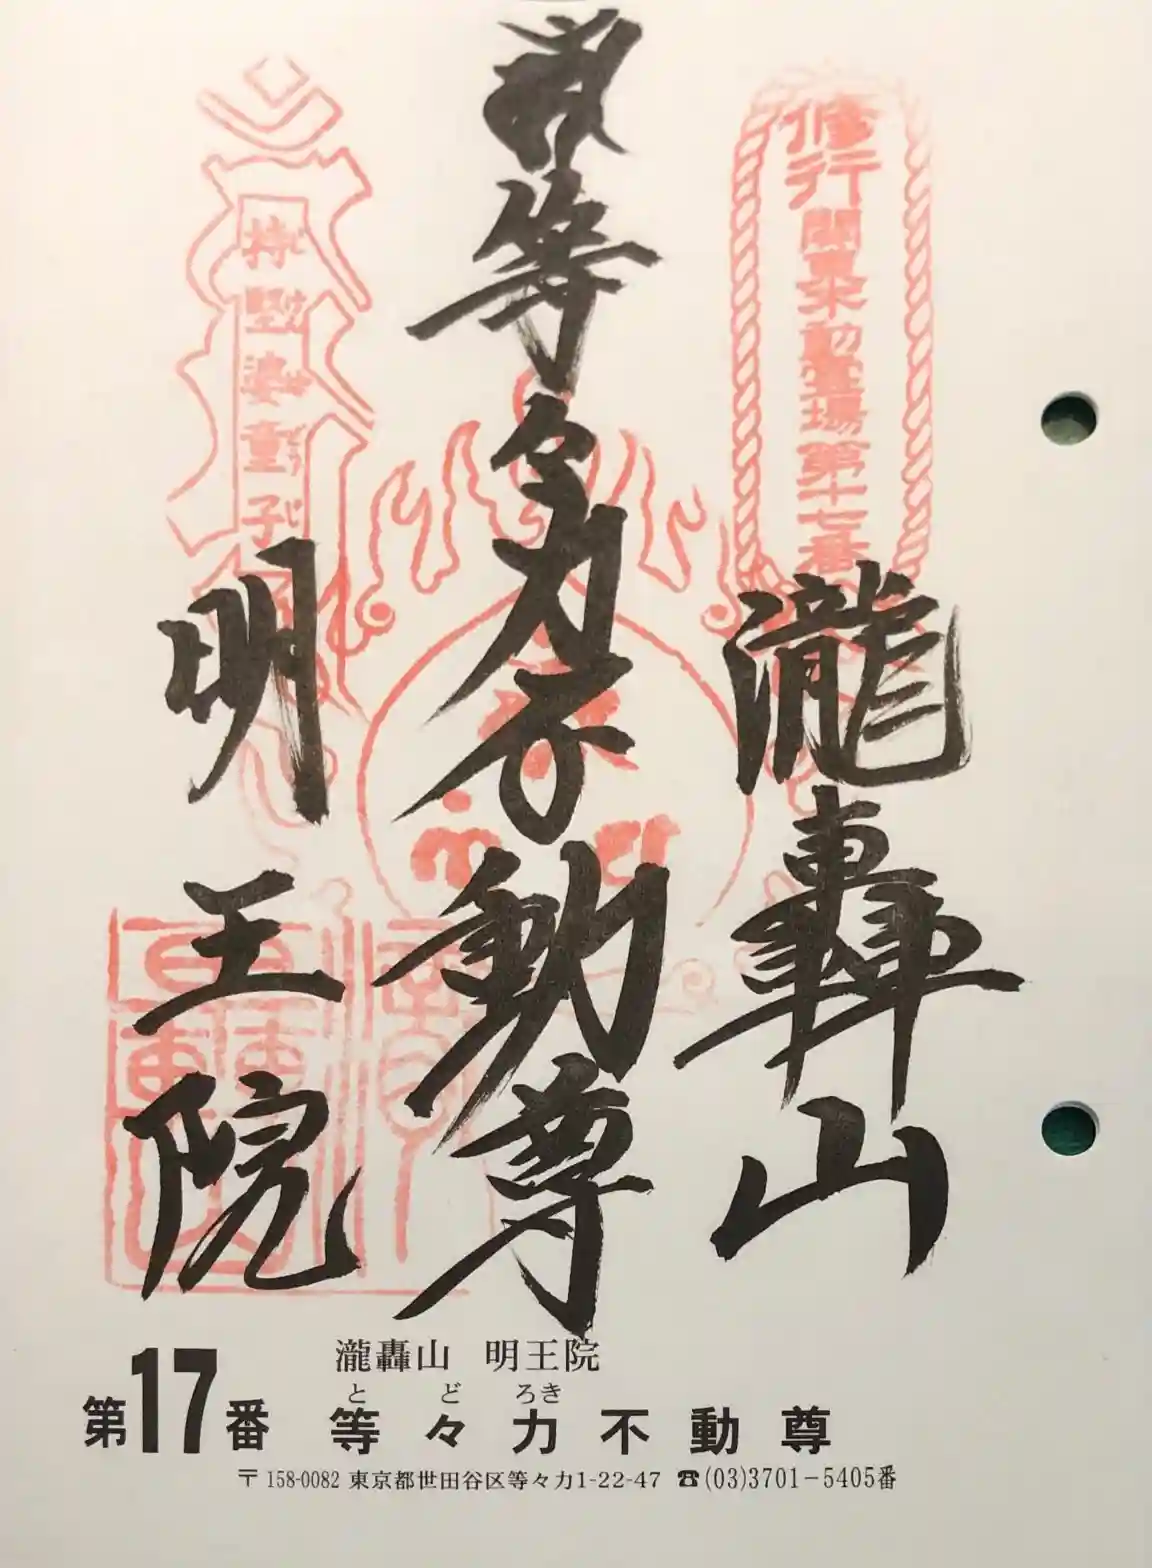 修行
関東不動霊場第十七番
瀧轟山
等々力不動尊
持堅婆童子
明王院
瀧轟山 明王院
とどろき
第17番 等々力不動尊
〒158-0082 東京都世田谷区等々力1-22-47 ☎(03)3701-5405番